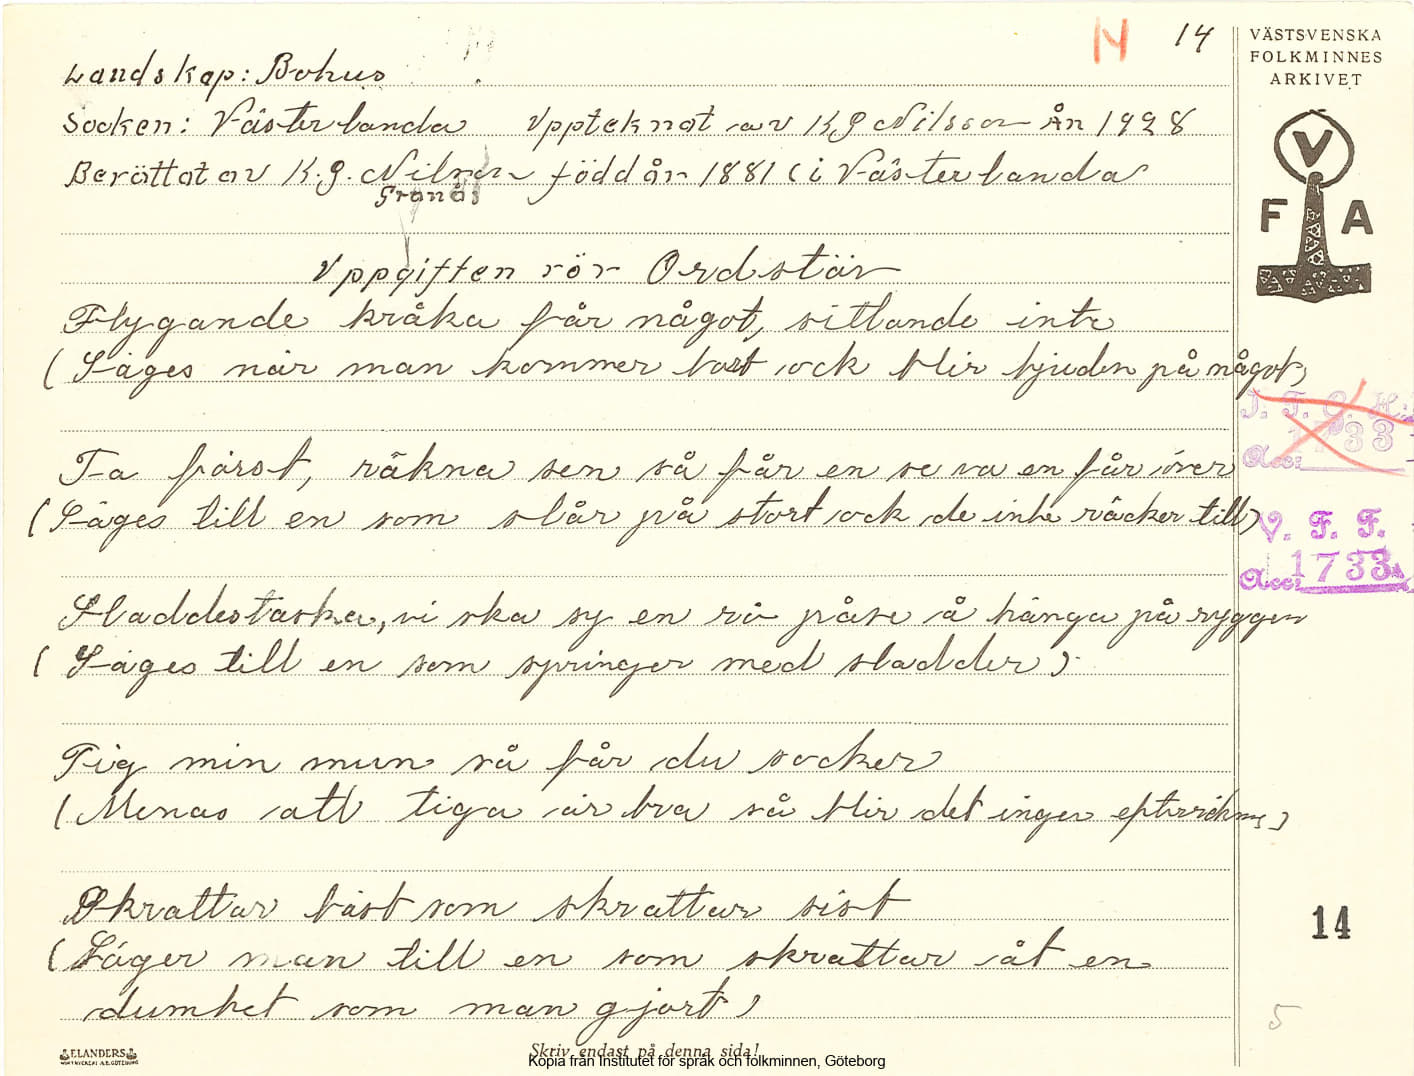 N 14
Landskap: Bohus
Socken: Västerlanda Upptecknat av K G Nilsson År 1928
Berättat av K. G. Nilsson född år 1881 ( i Västerlanda
Granås
Uppgiften rör Ordstäv
Flygande kråka får något, sittande inte
( Säges när man kommer bort ock blir bjuden på något)
Ta först, räkna sen så får en se va en får över
( Säges till en som slår på stort ock de inte räcker till)
Sladdestaska, vi ska sy en rö påse å hänga på ryggen
( Säges till en som springer med sladder )
Tig min mun så får du socker
( Menas att tiga är bra så blir det ingen efterräkning )
Skrattar bäst som skrattar sist
( Säger man till en som skrattar åt en
dumhet som man gjort )
VÄSTSVENSKA
FOLKMINNES
ARKIVET
V
F A
I. F. G. H.
Acc: 1733
V. F. F.
Acc: 1733
14
5
ELANDERS
Skriv endast på denna sida!
Kopia från Institutet för språk och folkminnen, Göteborg